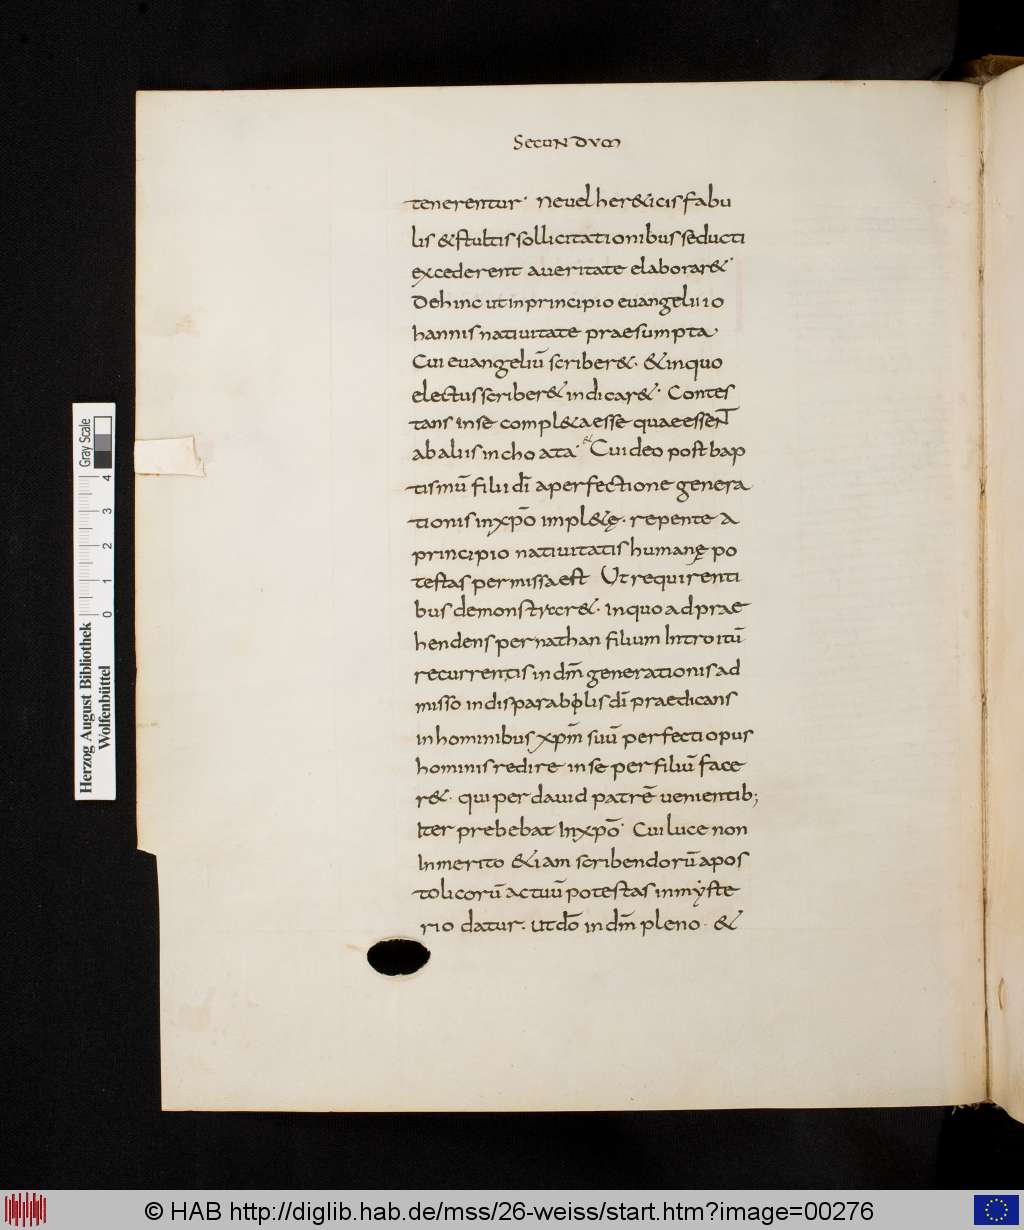 SECUNDUM
tenerentur· Neuel her&icis fabu
lis &stultis sollicitationibus seducti
excederent aueritate elaborar&·
Dehinc ut inprincipio euangelii io
hannis natiuitate praesumpta·
Cui euangeliū scriber&· &inquo
electus scriber& indicar&· Contes
tans inse compl&a esse quae essent
abaliis inchoata· & Cui deo post bap
tismū filii dī aperfectione genera
tionis inxpō impl&ę· repente a
principio natiuitatis humanę po
testas permissa est Ut requirenti
bus demonstrar&· inquo adprae
hendens per nathan filium Introitū
recurrentis in dm̄ generationis ad
misso indisparabilis dī praedicans
inhominibus xpm̄ suū perfecti opus
hominis redire inse per filiū face
r&· qui per dauid patrē uenientib;
Iter prebebat Inxpō· Cui luce non
Inmerito &iam scribendorū apos
tolicorū actuū potestas inmẏste
rio datur· Ut dō in dm̄ pleno· &
Herzog August Bibliothek
Wolfenbüttel
0 1 2 3 4
Gray Scale
© HAB http://diglib.hab.de/mss/26-weiss/start.htm?image=00276